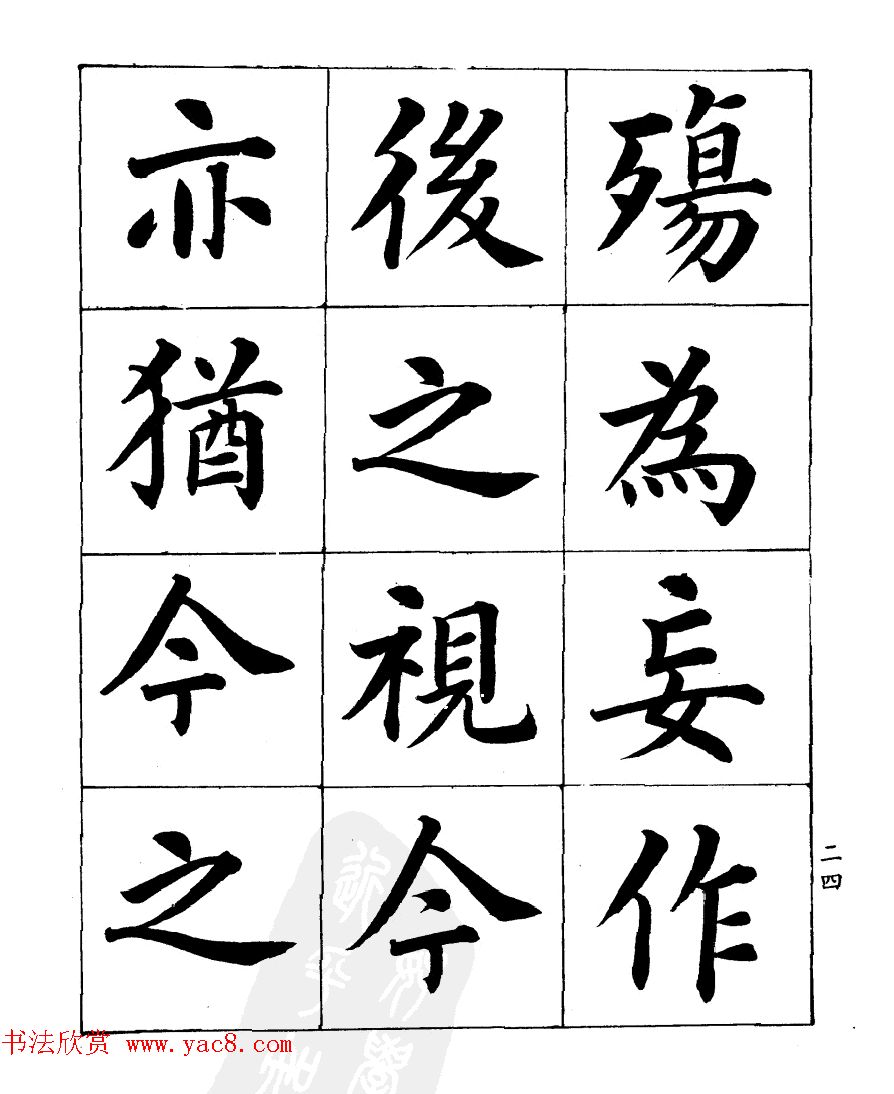 殤為妄作
後之視今
亦猶今之
二四
书法欣赏 www.yac8.com